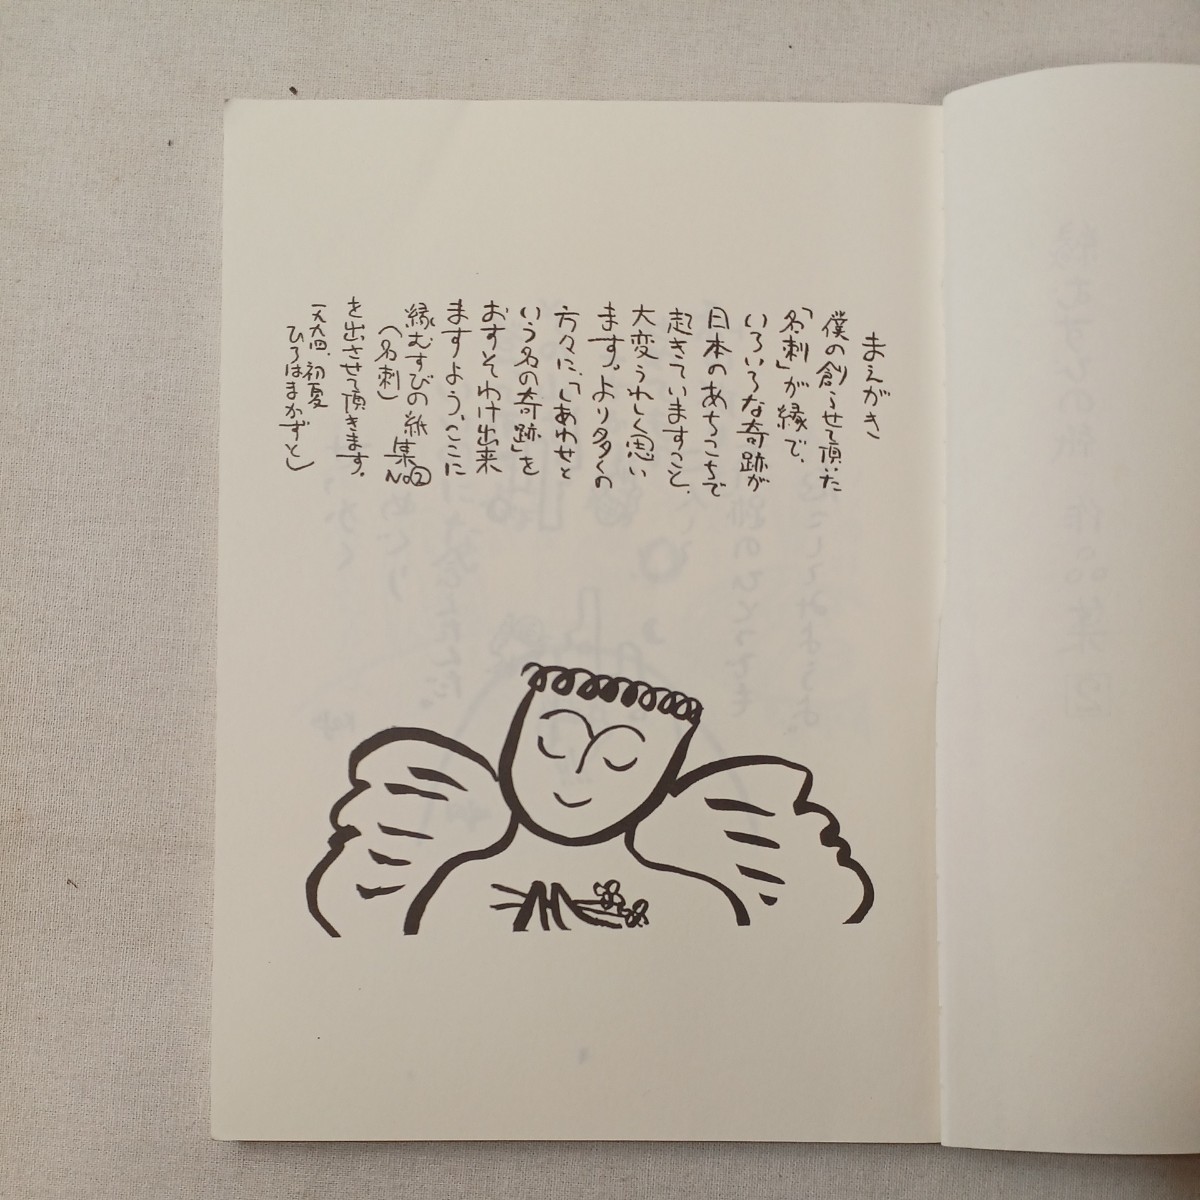 まえがき
僕の創らせて頂いた
「名刺」が縁で、
いろいろな奇跡が
日本のあちこちで
起きていますこと、
大変うれしく思い
ます。より多くの
方々に、「しあわせと
いう名の奇跡」を
おすそわけ出来
ますよう、ここに
縁むすびの紙集No②
(名刺)
を出させて頂きます。
一九九四、初夏
ひろはまかずとし